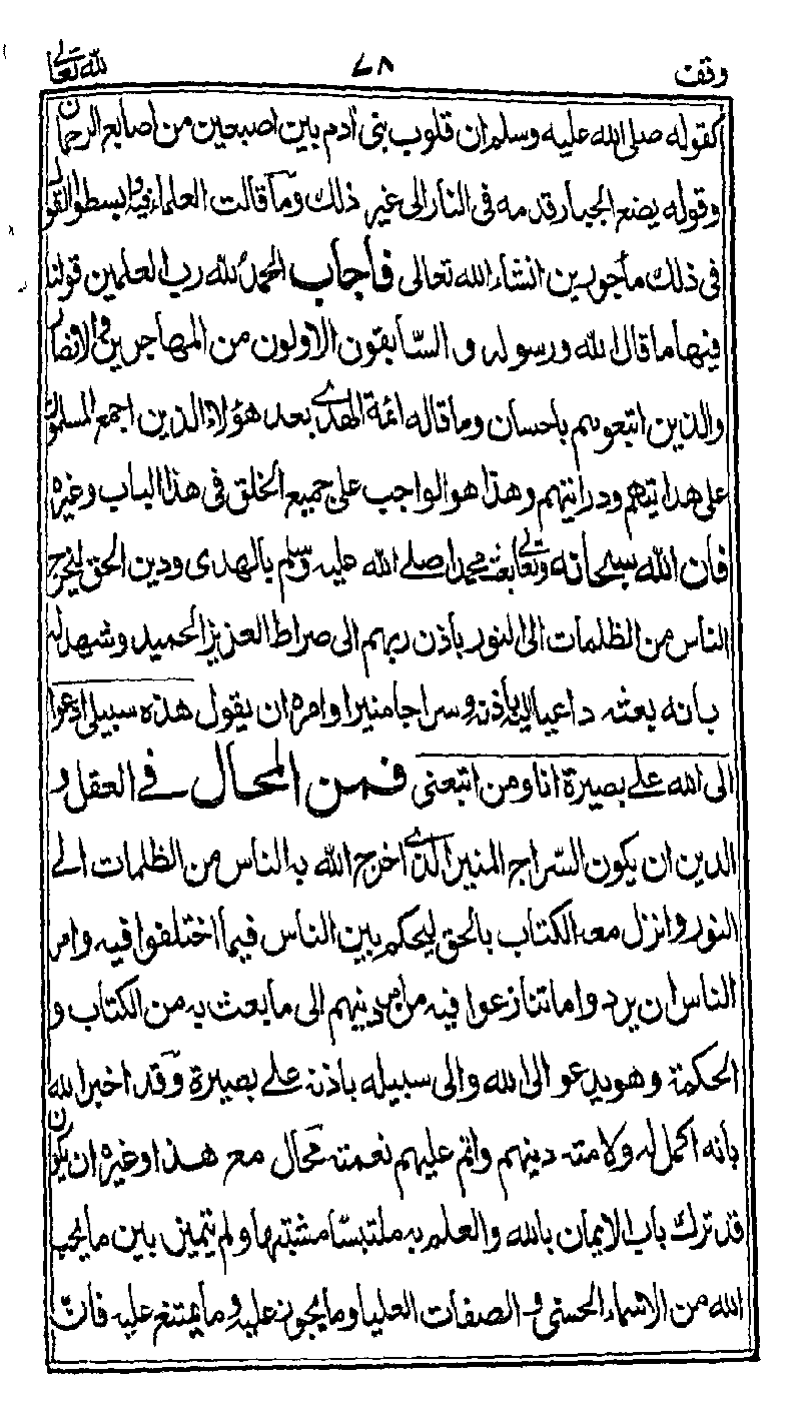 وقف ٧٨ لله تعالى
كقوله صلى الله عليه وسلم ان قلوب بنى آدم بين اصبعين من اصابع الرحمان
وقوله يضع الجبار قدمه فى النار الى غير ذلك وما قالت العلماء فيه وابسطوا القول
فى ذلك مأجورين انشاء الله تعالى فأجاب الحمد لله رب العلمين قولنا
فيها ما قال الله ورسوله و السّابقون الاولون من المهاجرين والانصار
والذين اتبعوهم باحسان وما قاله ائمة الهدى بعد هؤلاء الذين اجمع المسلمون
على هدايتهم ودرايتهم وهذا هو الواجب على جميع الخلق فى هذا الباب وغيره
فان الله سبحانه وتعالى بعث محمدا صلے الله عليه وسلم بالهدى ودين الحق ليخرج
الناس من الظلمات الى النور باذن ربهم الى صراط العزيز الحميد وشهد له
بانه بعثه داعيا اليه باذنه وسراجا منيرا وامره ان يقول هذه سبيلى ادعوا
الى الله علے بصيرة انا ومن اتبعنى فمن المحال فے العقل و
الدين ان يكون السّراج المنير الذے اخرج الله به الناس من الظلمات الے
النور وانزل معه الكتاب بالحق ليحكم بين الناس فيما اختلفوا فيه وامر
الناس ان يردوا ما تنازعوا فيه من امر دينهم الى ما بعث به من الكتاب و
الحكمة وهو يدعو الى الله والى سبيله باذنه علے بصيرة وقد اخبر الله
بانه اكمل له ولامته دينهم واتم عليهم نعمته محال مع هذا وغيره ان يكون
قد ترك باب الايمان بالله والعلم به ملتبسّا مشتبها ولم يتميز بين ما يجب
الله من الاسماء الحسنى و الصفات العليا وما يجوز عليه وما يمتنع عليه فانّ